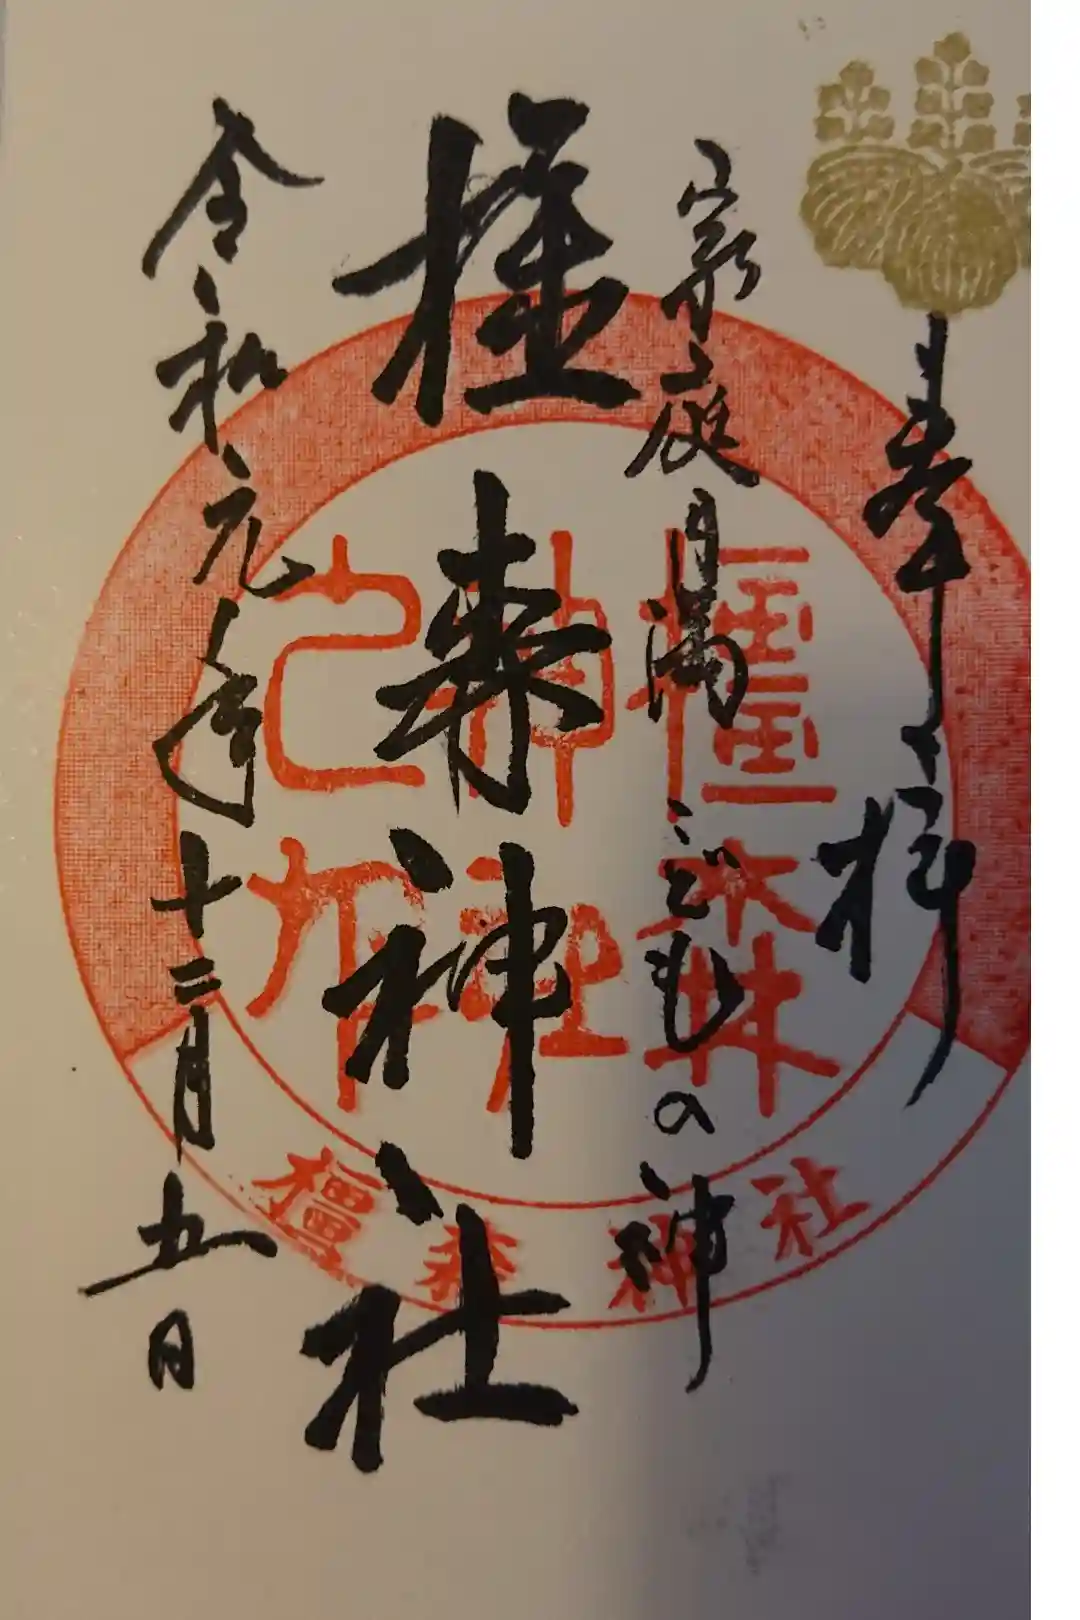 奉拝
家庭円満こどもの神
橿森神社
令和元年十二月五日
橿森
神社
之印
橿森神社